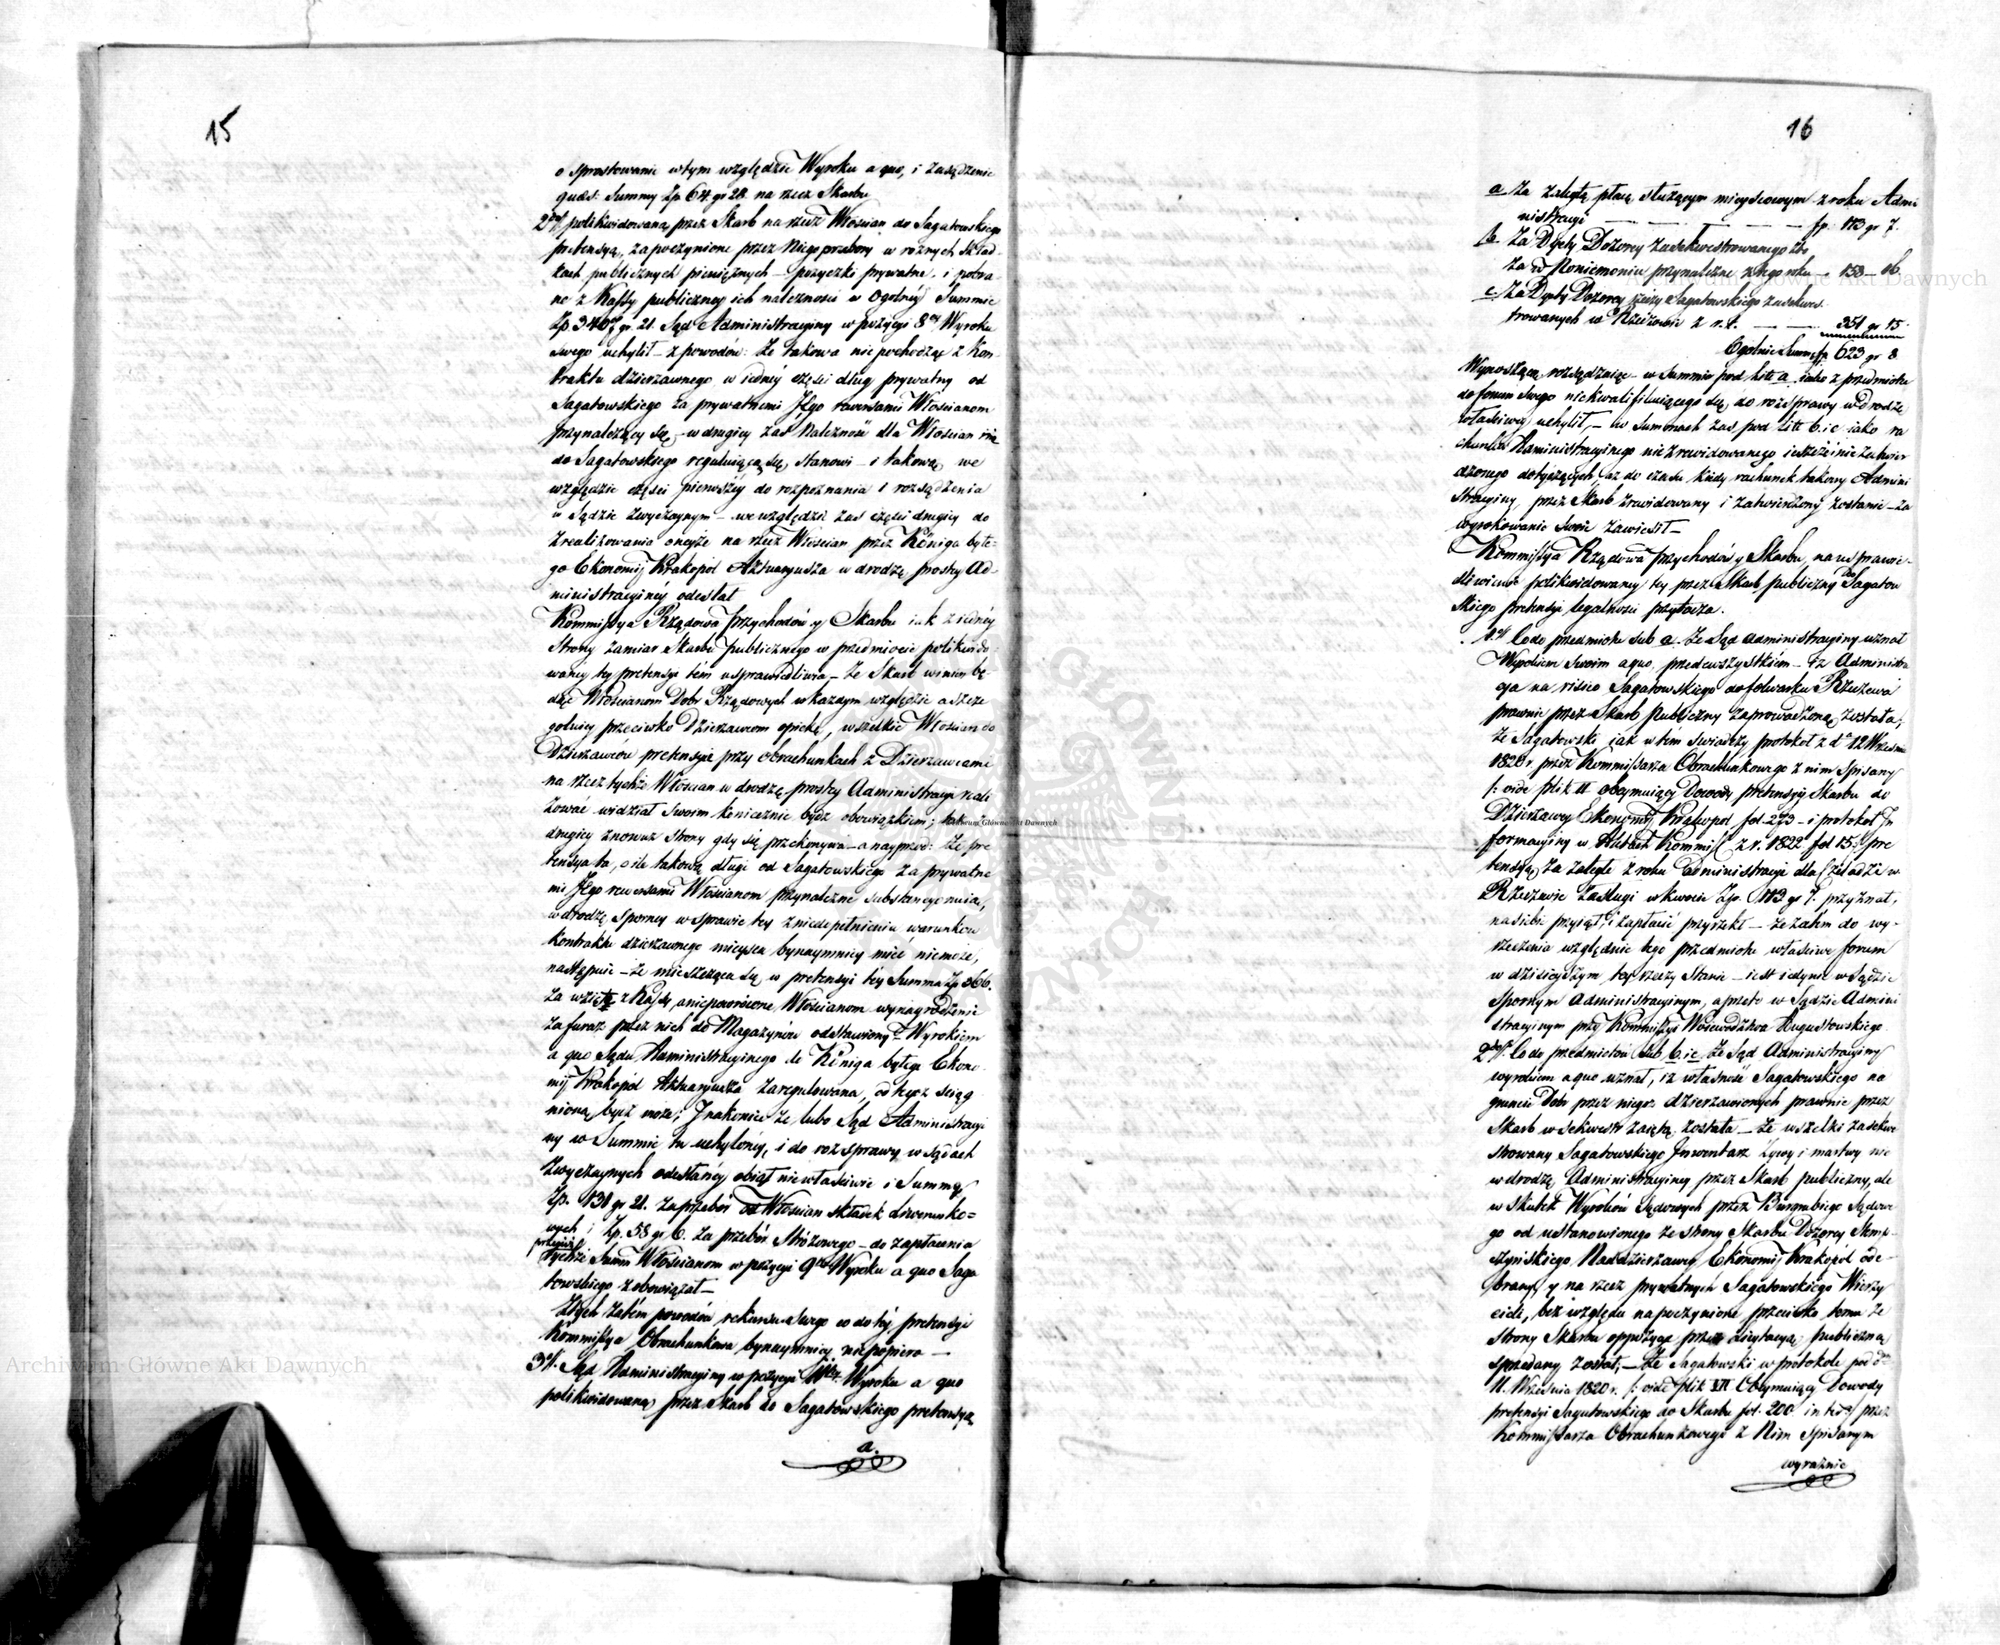 15
o sprostowanie wtym względzie Wyroku a quo, i zasądzenie
quaest: Summy Zp 64 gr 28 na rzecz Skarbu
2do polikwidowaną przez Skarb na rzecz Włościan do Sagatowskiego
pretensyą, zapoczynione przez Niego przebory w różnych Skład-
kach publicznych pieniężnych – pożyczki prywatne, i pobra-
ne z Kassy publiczney ich należności w Ogólnéy Summie
Zp gr. 21. Sąd Administracyiny w pozycyi 8ey Wyroku
swego uchylił – z powodów: że takowa nie pochodząc z Kon-
traktu dzierżawnego w iednéy części dług prywatny od
Sagatowskiego za prywatnemi Jego rewersami Włościanom
przynależący się – w drugiey zaś Należność dla Włościan nie
do Sagatowskiego regulującą się, stanowi – i takową, we
względzie części pierwszéy do rozpoznania i rozsądzenia
w Sądzie zwyczaynym – we względzie zaś części drugiey do
zrealizowania oneyże na rzecz Włościan przez Königa byłe-
go Ekonomij Krakopol Aktuaryusza w drodzę prostéy Ad-
ministracyinéy odesłał
Kommissya Rządowa Przychodów y Skarbu iak z iednéy
Strony zamiar Skarbu publicznego w przedmiocie polikwido-
waney téy pretensyi tém usprawiedliwia – że Skarb winien bę-
dąc Włościanom Dobr Rządowych w każdym względzie a szcze-
gólniey przeciwko Dzierżawcom opiekę, wszelkie Włościan do
Dzierżawców pretensye przy obrachunkach z Dzierżawcami
na rzecz tychże Włościan w drodzę prostéy Administracyi reali
zować widział swoim koniecznie bydź obowiązkiem; tak z
drugiey znowuż strony gdy się przekonywa – a nayprzód: że pre
tensya ta, o ile takową długi od Sagatowskiego za prywatne
mi Jego rewersami Włościanom przynależne
w drodzę sporney w sprawie téy z niedopełnieniu warunków
kontraktu dzierżawnego mieysca bynaymniey mieć niemoże,
następnie – że mieszcząca się w pretensyi téy Summa Zp 366.
za wzięte z Kassy, a niepowrócone Włościanom wynagrodzenie
za furaż przez nich do Magazynów odstawiony Wyrokiem
a quo Sądu Administracyinego do Königa byłego Ekono-
mij Krakopol Aktuaryusza zaregulowana, od tegoż ściąg
nioną być może; Jnakoniec że lubo Sąd Administracyi
ny w Summie tu uchylonéy, i do rozsprawy w Sądach
Zwyczaynych odesłanéy obiął niewłaściwie i Summy
Zp. 131 gr 21. za przebór od Włościan składek liwerunko=
wych i Zp. 58 gr 6. za przebór Stróżowego – do zapłacenia
tychże Summ Włościanom w pozycyi 9tey Wyroku a quo Saga
towskiego zobowiązał –
Z tych zatém powodów, rekursu swego co do téj pretensyi
Kommissya Obrachunkowa bynaymniey niepopiera –
3o Sąd Administracyiny w pozycyi Wyroku a quo
polikwidowaną przez Skarb do Sagatowskiego pretensyą
a.
16
a. Za zaległą płacę służącym mieyscowym z roku Admi
nistracyi – – – – fp. 113 gr 7.
b. Za Dyety Dozorcy zasekwestrowanego zbo
ża w Poniemoniu przynależne z tegoż roku – 158 – 16
c. Za Dyety Dozorcy rzeczy Sagatowskiego zasekwes-
trowanych w Rzeczowie z r. t. – – 351 gr 15
Ogólnie Summę fp 623 gr 8
Wynoszącą, rozsądzając – w Summie pod Lit: a. iako z przedmiotu
do forum swego niekwalifikuiącego się, do rozsprawy w drodze
właściwey uchylił, – w Summach zaś, pod Lit: b. i c iako ra
chunku Administracyinego niezrewidowanego ieszcze i niezatwier
dzonego dotyczących, aż do czasu kiedy rachunek takowy Admini
stracyiny, przez Skarb zrewidowany i zatwierdzony zostanie – za
wyrokowanie swoie zawiesił –
Kommissya Rządowa Przychodów y Skarbu, na usprawie-
dliwienie polikwidowaney téy przez Skarb publiczny do Sagatow
skiego pretensyi legalności przytacza.
1o Co do przedmiotu sub a. że Sąd Administracyiny uznał
Wyrokiem swoim a quo. przedewszystkiém – iż Administra
cya na risico Sagatowskiego do folwarku Rzeczewa
prawnie przez Skarb Publiczny zaprowadzoną została;
że Sagatowski jak w tém świadczy protokoł z d. 12 Września
1820 r. przez Kommissarza Obrachunkowego z nim spisany
/: vide plik II obeymuiący Dowody pretensyi Skarbu do
Dzierżawcy Ekonomij Krakopol fol. 273 – i protokoł In
formacyiny w Aktach Kommiss. z r. 1822 fol 15. pre
tensyą, za zaległe z roku Administracyi dla Czeladzi w
Rzeczewie Zasługi w kwocie Zp. 113 gr 7. przyznał,
na siebie przyiął i zapłacić przyrzekł – że zatém do wy-
rzeczenia względnie tego przedmiotu właściwe forum
w dzisieyszym téy rzeczy stanie – iest iedynie w Sądzie
Spornym Administracyinym, a przeto w Sądzie Admini
stracyinym przy Kommissyi Województwa Augustowskiego.
2do Co do przedmiotów sub b. i c. że Sąd Administracyiny
wyrokiem a quo uznał, iż własność Sagatowskiego na
gruncie Dobr przez niego dzierżawionych prawnie przez
Skarb w sekwestr zaiętą została – że wszelki zasekwe
strowany Sagatowskiego Jnwentarz żywy i martwy nie
w drodzę Administracyiney przez Skarb publiczny, ale
w skutek Wyroków Sądowych przez Burgrabiego Sądowe
go od ustanowionego ze strony Skarbu Dozorcy Skem-
szyńskiego Naddzierżawcy Ekonomij Krakopol ode-
brany, y na rzecz prywatnych Sagatowskiego Wierzy
cieli, bez względu na poczynione przeciwko temu ze
strony Skarbu oppozycye przez licytacyą publiczną
sprzedany został; – że Sagatowski w protokole pod d.
11. Września 1820 r. /: vide plik VII Obeymuiący Dowody
pretensyi Sagatowskiego do Skarbu fol. 200. przez
Kommissarza Obrachunkowego z Nim spisanym
wyraźnie